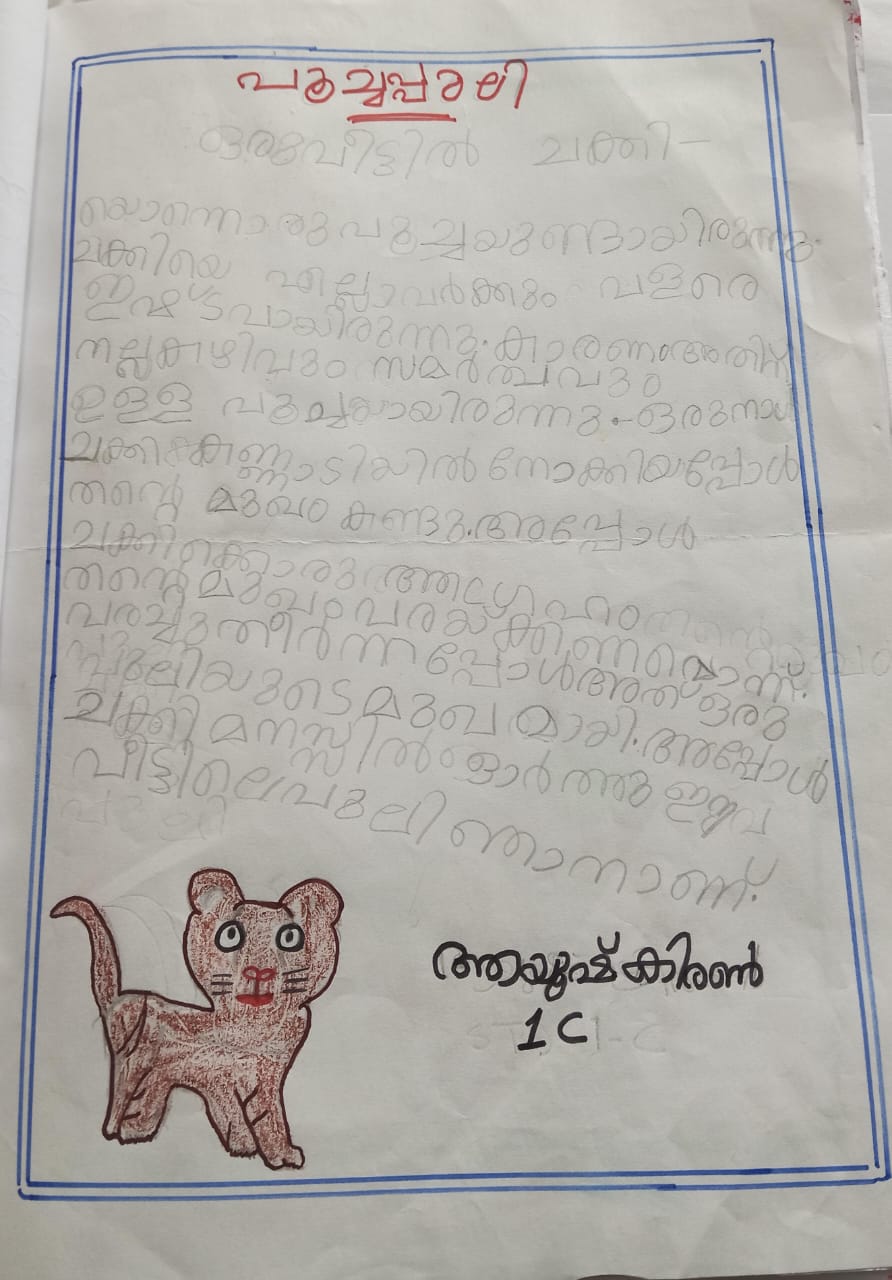 പൂച്ചപ്പുലി
ഒരുവീട്ടിൽ ചക്കി-
യൊന്നൊരു പൂച്ചയുണ്ടായിരുന്നു.
ചക്കിയെ എല്ലാവർക്കും വളരെ
ഇഷ്ടവായിരുന്നു. കാരണംഅതിന്
നല്ലകഴിവും സമർത്ഥവും
ഉള്ള പൂച്ചയായിരുന്നു. ഒരുനാൾ
ചക്കി കണ്ണാടിയിൽ നോക്കിയപ്പോൾ
തന്റെ മുഖം കണ്ടു. അപ്പോൾ
ചക്കിക്കൊരു ആഗ്രഹം
തന്റെ മുഖം വരയ്ക്കണമെന്ന്.
വരച്ചുതീർന്നപ്പോൾ അത് ഒരു
പുലിയുടെ മുഖമായി. അപ്പോൾ
ചക്കി മനസ്സിൽ ഓർത്തു ഈ
വീട്ടിലെ പുലി ഞാനാണ്.
ആയുഷ് കിരൺ
1 C